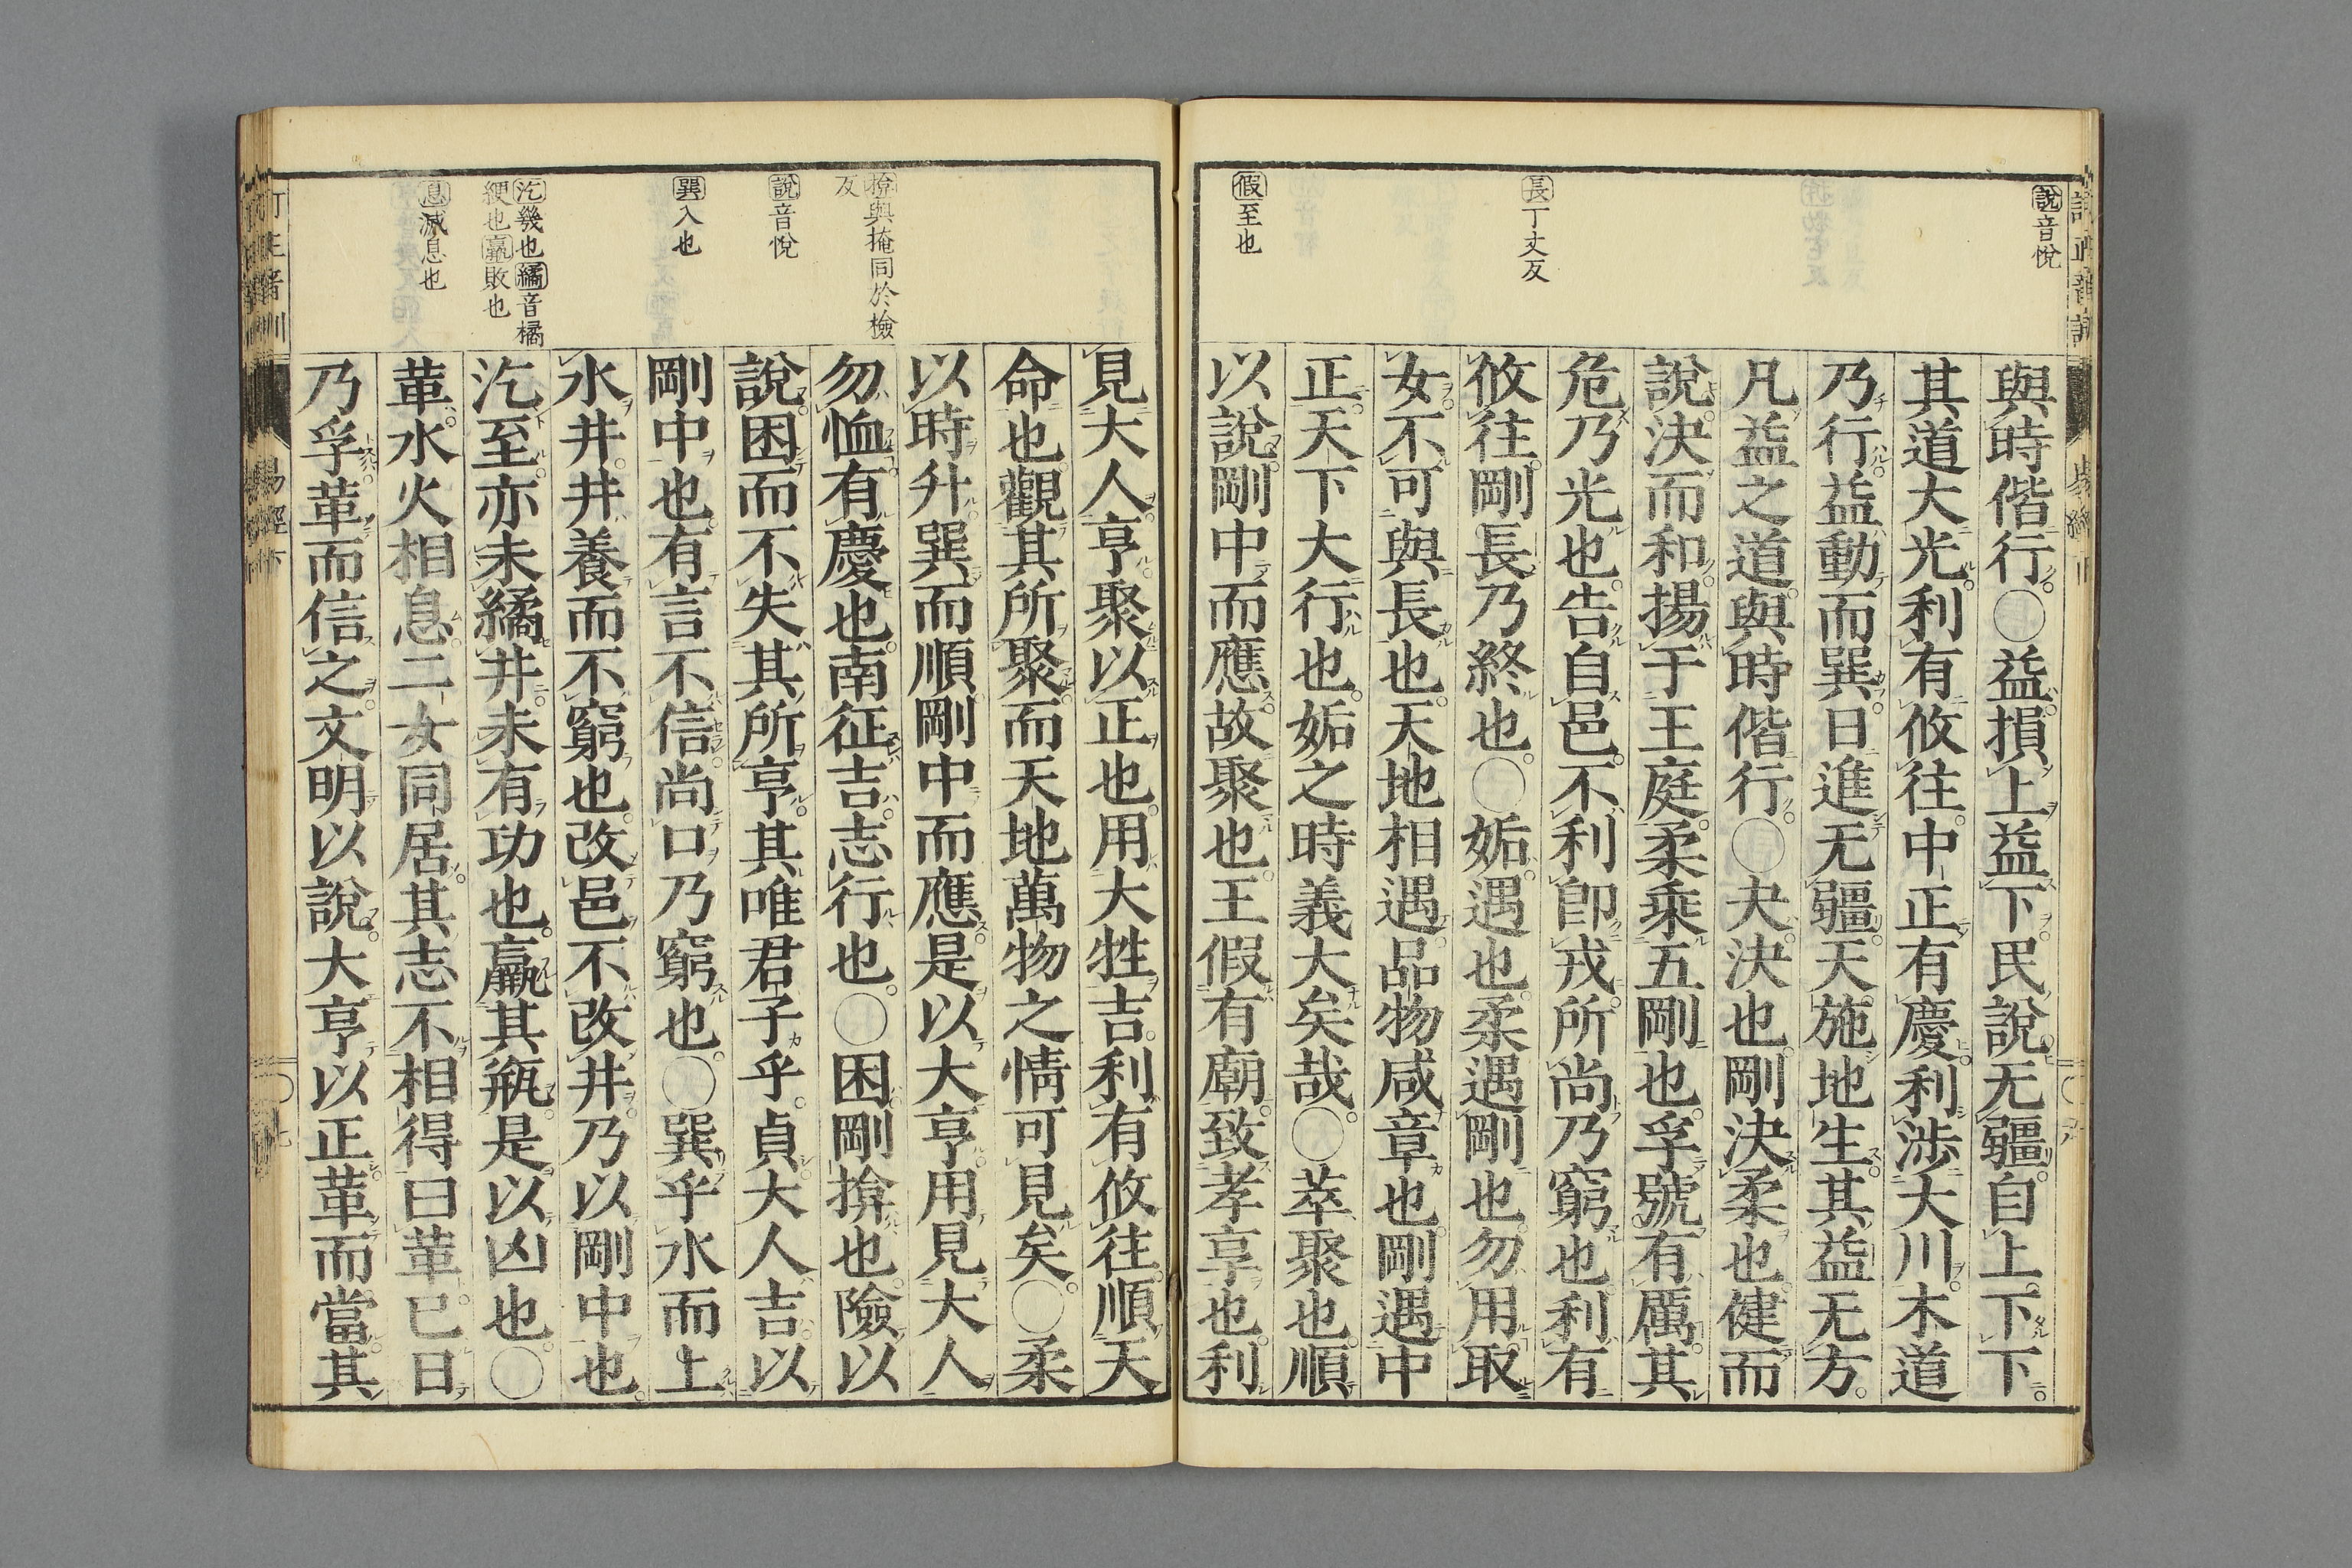 說音悅
長丁丈反
假至也
與時偕行○益損上益下民說无疆自上下下
其道大光利有攸往中正有慶利涉大川木道
乃行益動而巽日進无疆天施地生其益无方
凡益之道與時偕行○夬決也剛決柔也健而
說決而和揚于王庭柔乘五剛也孚號有厲其
危乃光也告自邑不利卽戎所尚乃窮也利有
攸往剛長乃終也○姤遇也柔遇剛也勿用取
女不可與長也天地相遇品物咸章也剛遇中
正天下大行也姤之時義大矣哉○萃聚也順
以說剛中而應故聚也王假有廟致孝享也利
揜與掩同於檢
反
說音悅
巽入也
汔幾也繘音橘
綆也羸敗也
息滅息也
見大人亨聚以正也用大牲吉利有攸往順天
命也觀其所聚而天地萬物之情可見矣○柔
以時升巽而順剛中而應是以大亨用見大人
勿恤有慶也南征吉志行也○困剛揜也險以
說困而不失其所亨其唯君子乎貞大人吉以
剛中也有言不信尚口乃窮也○巽乎水而上
水井井養而不窮也改邑不改井乃以剛中也
汔至亦未繘井未有功也羸其瓶是以凶也○
革水火相息二女同居其志不相得曰革已日
乃孚革而信之文明以說大亨以正革而當其